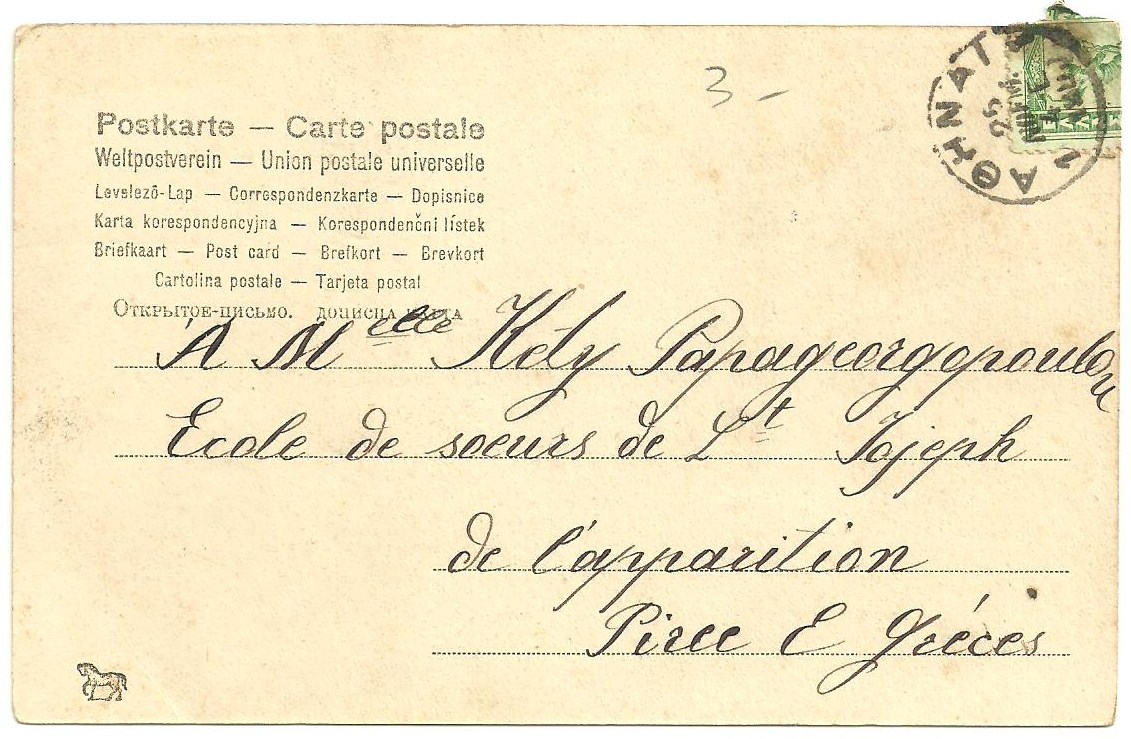 3 -
Postkarte — Carte postale
Weltpostverein — Union postale universelle
Levelező-Lap — Correspondenzkarte — Dopisnice
Karta korespondencyjna — Korespondenční lístek
Briefkaart — Post card — Brefkort — Brevkort
Cartolina postale — Tarjeta postal
Открытое-письмо. дописна карта
ΑΘΗΝΑΙ 1
A Melle Kéty Papageorgopoulou
Ecole de soeurs de St Jojeph
de l'apparition
Piree E Gréces